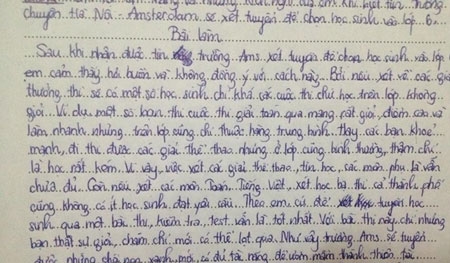 chuyên Hà Nội - Amsterdam sẽ xét tuyển để chọn học sinh vào lớp 6
Bài làm
Sau khi nhận được tin trường Ams xét tuyển để chọn học sinh vào lớp
em cảm thấy hơi buồn và không đồng ý với cách này. Bởi nếu xét về các giải
thưởng thì sẽ có một số học sinh chỉ khá các cuộc thi chứ học trên lớp không
giỏi. Ví dụ một số bạn thi cuộc thi giải toán qua mạng rất giỏi, chăm cày và
làm nhanh nhưng trên lớp cũng chỉ thuộc hạng trung bình. Hay các bạn khoẻ
mạnh, đi thi được các giải thể thao nhưng ở lớp cũng bình thường, thậm chí
là học rất kém. Vì vậy, việc xét các giải thể thao, tin học, các môn phụ là vẫn
chưa đủ. Còn nếu xét các môn Toán, Tiếng Việt, xét học bạ thì cả thành phố
cũng không có ít học sinh đạt yêu cầu. Theo em, cứ để tuyển học
sinh qua một bài thi, kiểm tra, test vẫn là tốt nhất. Với bài thi này chỉ những
bạn thật sự giỏi, chăm chỉ mới có thể lọt qua. Như vậy trường Ams sẽ tuyển
được những chồi non xanh mới có đủ tài năng để ươm mầm thành thiên tài